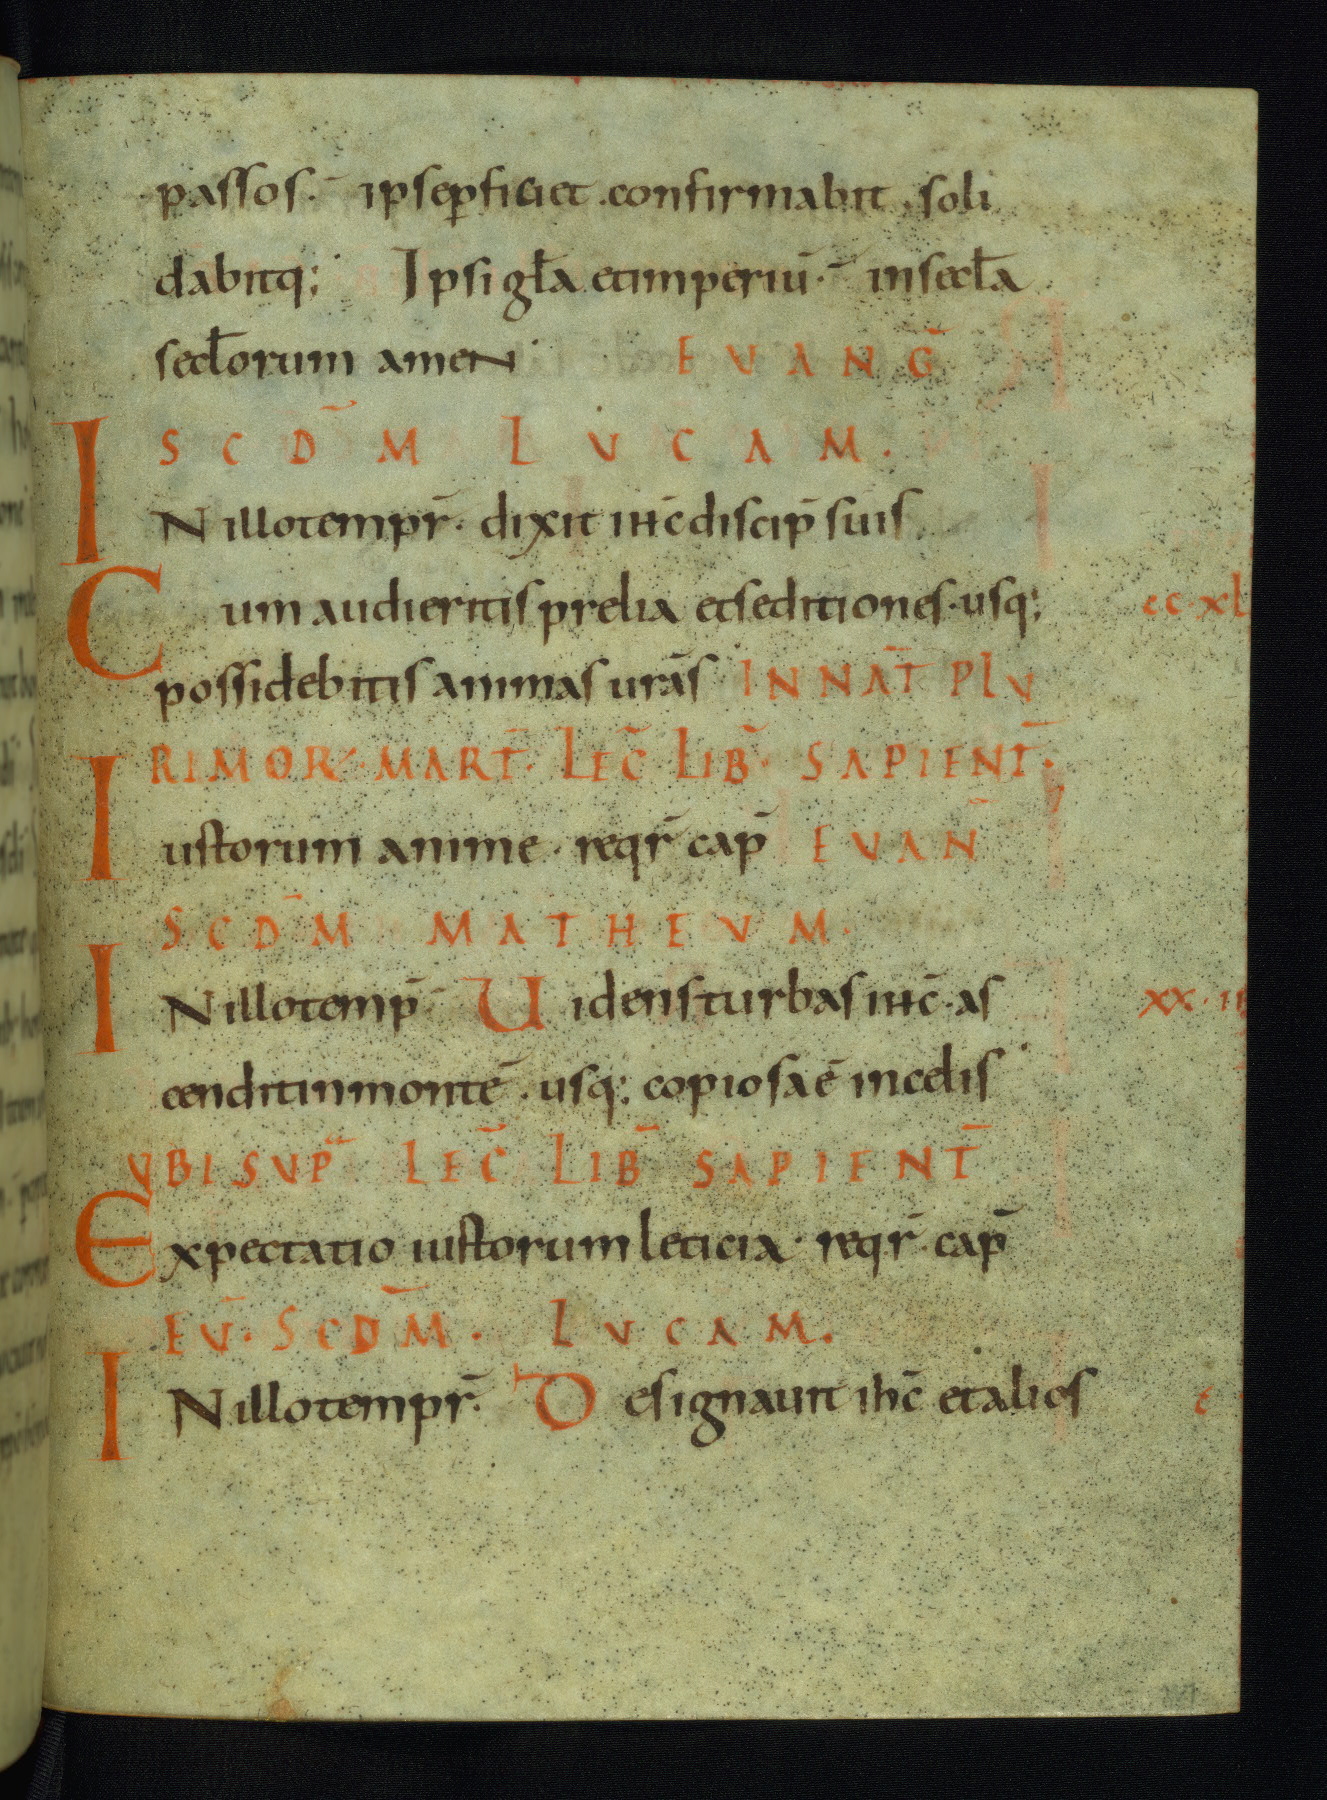 passos. ipse ꝑficiet .confirmabit .soli
dabitq; Ipsi gła et imperiū. in secła
secłorum amen EVANḠ
SCDM̄ LUCAM.
IN illo tempr̄. dixit ihc̄ discip̄ suis
Cum audieritis prelia et seditiones. usq; cc.xl
possidebitis animas urās IN NAT̄ PLU
RIMOR. MART̄. LEC̄ LIB̄. SAPIENT̄.
Iustorum anime. reqr̄ cap̄ EVAN̄
SCD̄M MATHEVM.
IN illo temp̄ Uidens turbas ihc̄. as xx.
cendit in montē. usq; copiosa ē in celis
UBI SUP̄ LEC̄ LIB̄ SAPIENT̄
Expectatio iustorum leticia. reqr̄ cap̄
EV̄. SCDM̄. LUCAM.
IN illo tempr̄. Designauit ihc̄ et alios c